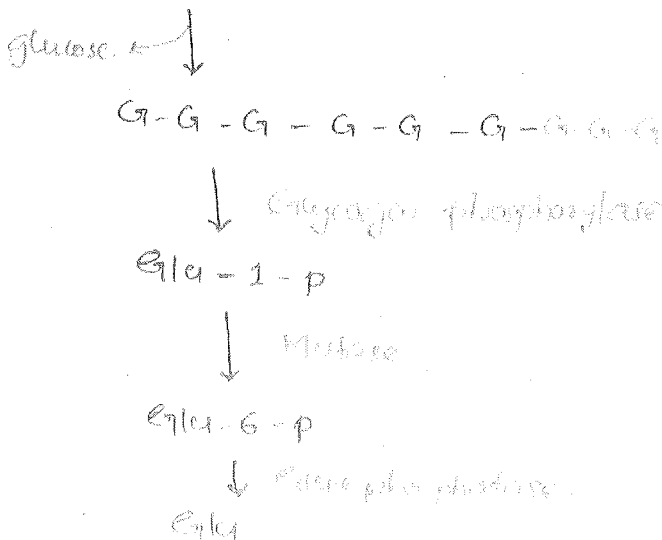 glucose
G - G - G - G - G - G - G - G - G
Glycogen phosphorylase
Glu - 1 - P
Mutase
Glu - 6 - P
Glu